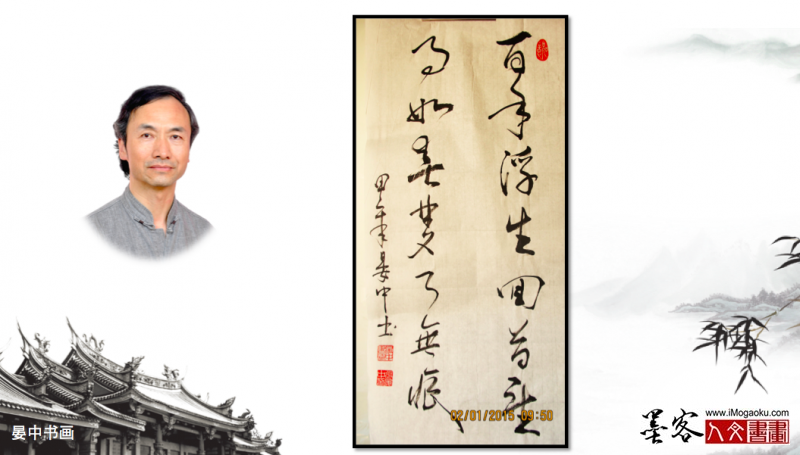 百年浮生回首
事如春梦了无痕
甲午年晏中书
02/01/2015 09:50
晏中书画
墨客
www.iMogaoku.com
人文書畫